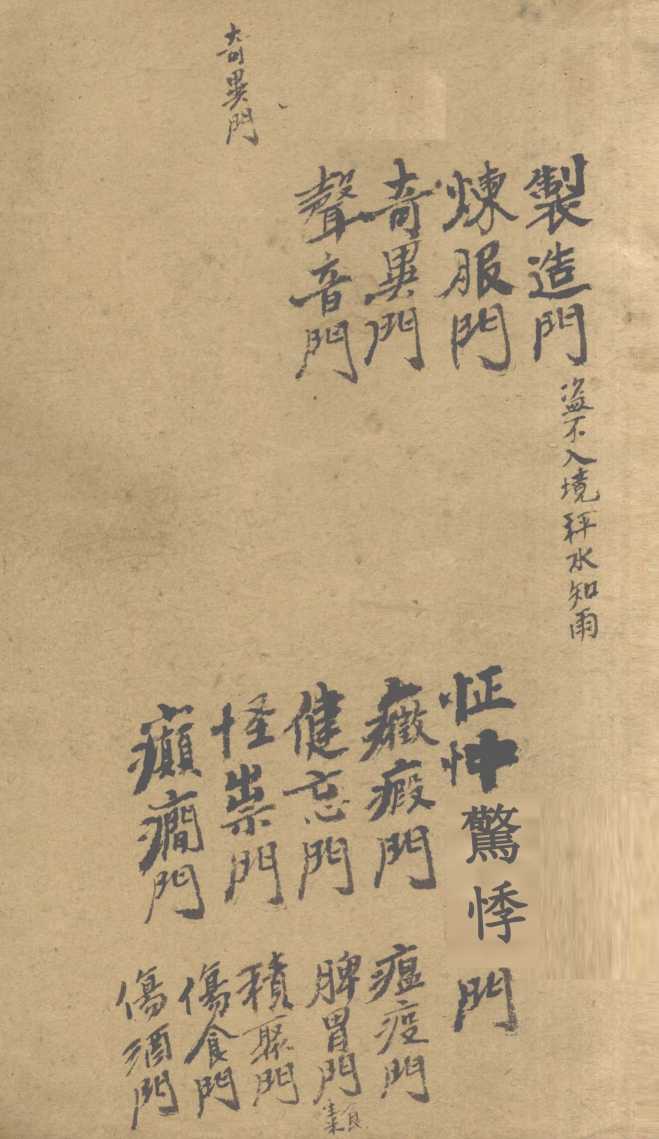 製造門
盜不入境秤水知雨
煉服門
奇異門
聲音門
奇異門
怔忡驚悸門
癥瘕門
健忘門
怪祟門
癲癇門
瘟疫門
脾胃門
積聚門
傷食門
傷酒門